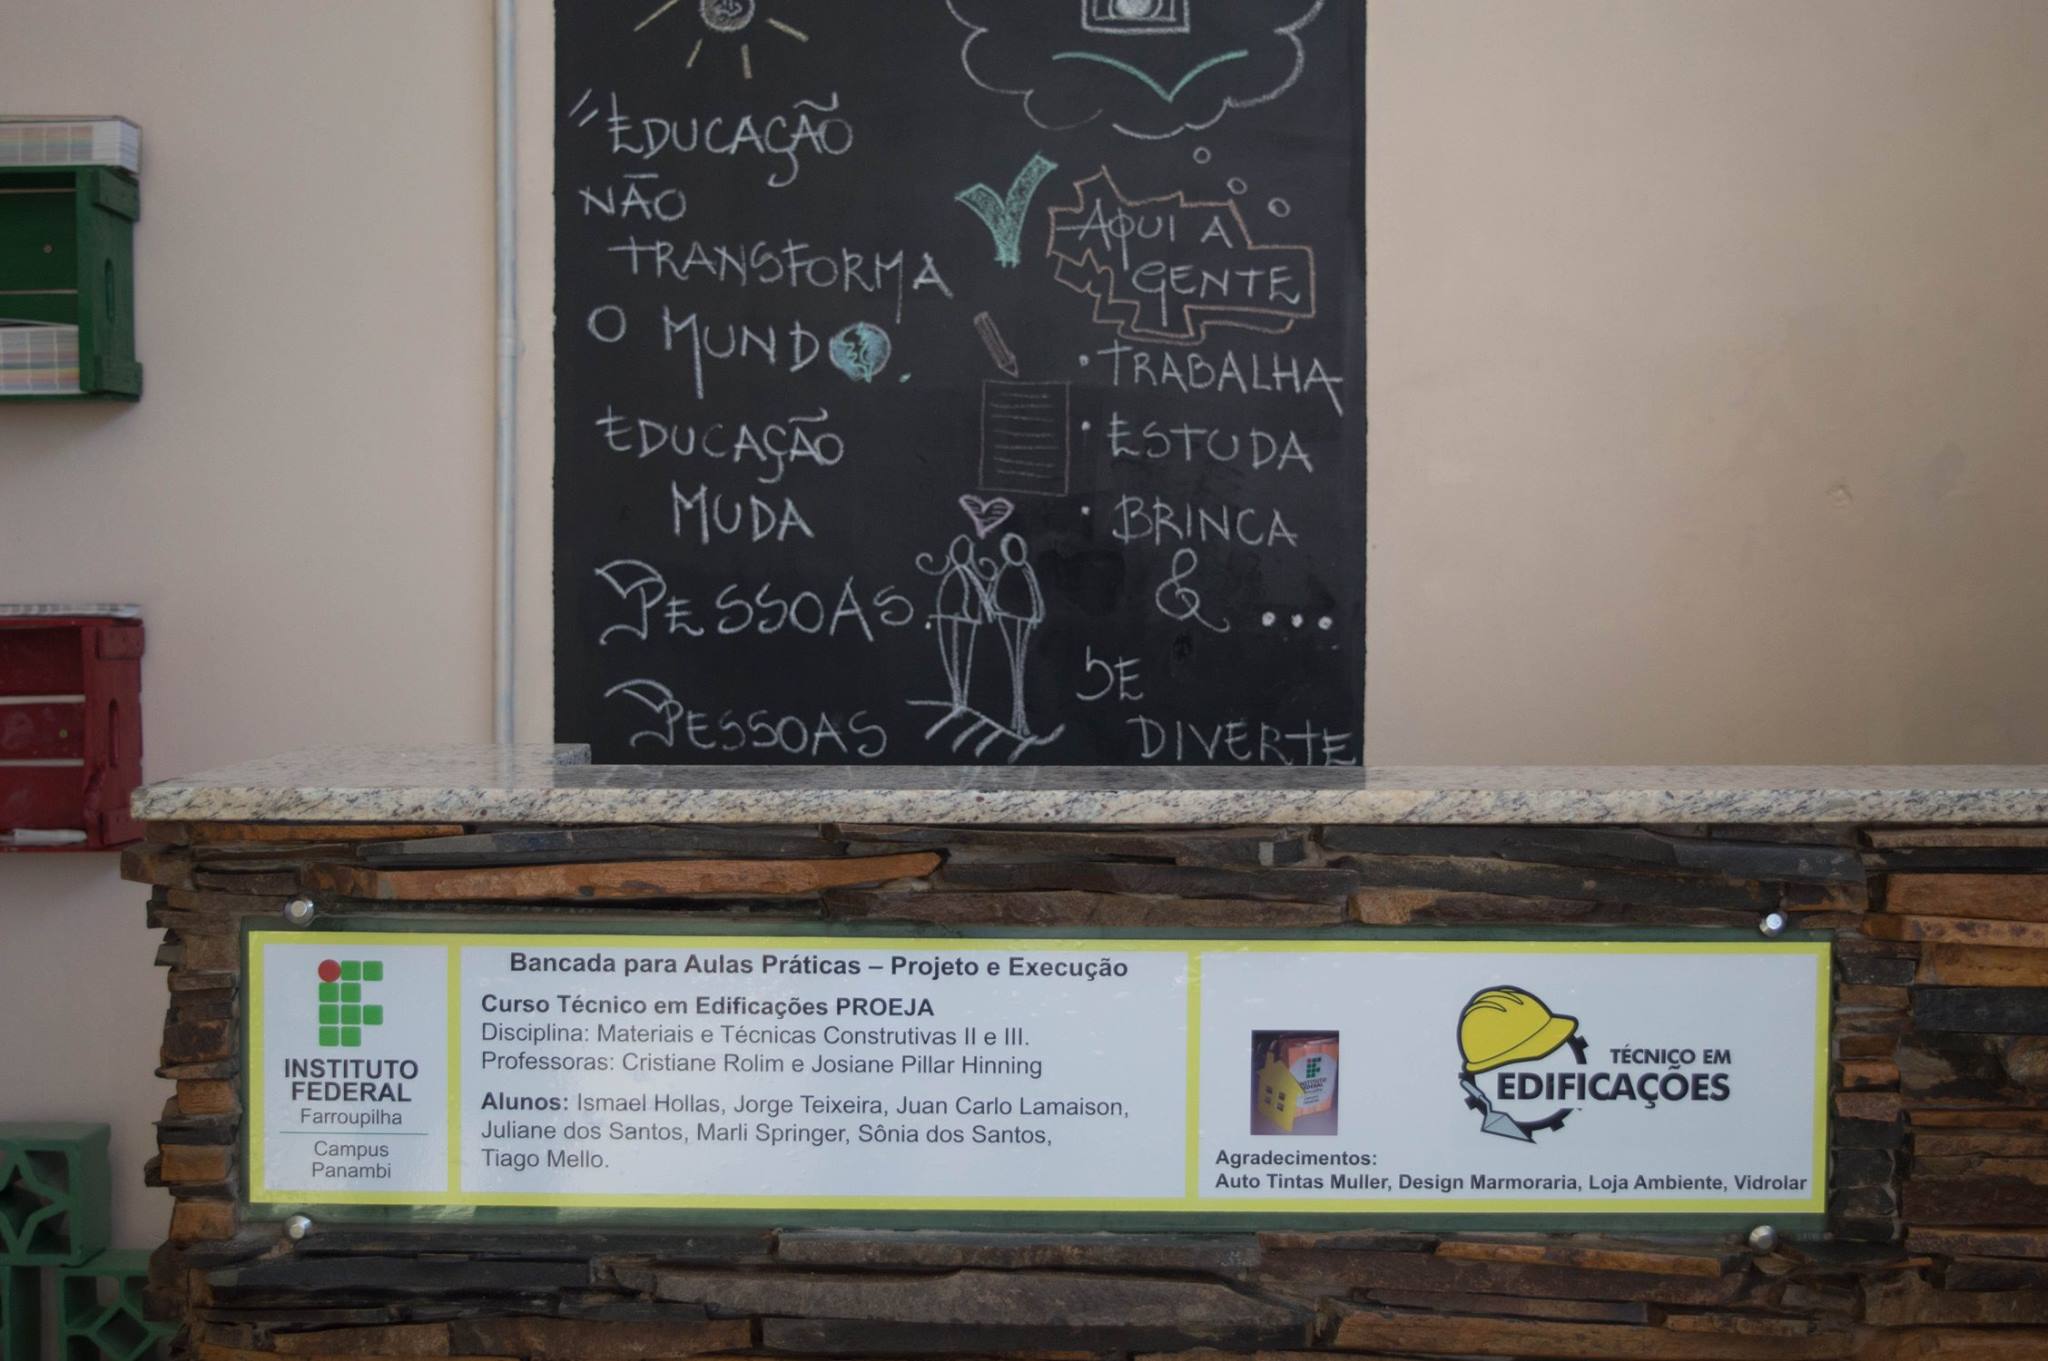 "EDUCAÇÃO
NÃO
TRANSFORMA
O MUNDO.
EDUCAÇÃO
MUDA
PESSOAS.
PESSOAS
AQUI A
GENTE
• TRABALHA
• ESTUDA
• BRINCA
& ...
SE
DIVERTE
INSTITUTO
FEDERAL
Farroupilha
Campus
Panambi
Bancada para Aulas Práticas – Projeto e Execução
Curso Técnico em Edificações PROEJA
Disciplina: Materiais e Técnicas Construtivas II e III.
Professoras: Cristiane Rolim e Josiane Pillar Hinning
Alunos: Ismael Hollas, Jorge Teixeira, Juan Carlo Lamaison,
Juliane dos Santos, Marli Springer, Sônia dos Santos,
Tiago Mello.
INSTITUTO
FEDERAL
TÉCNICO EM
EDIFICAÇÕES
Agradecimentos:
Auto Tintas Muller, Design Marmoraria, Loja Ambiente, Vidrolar